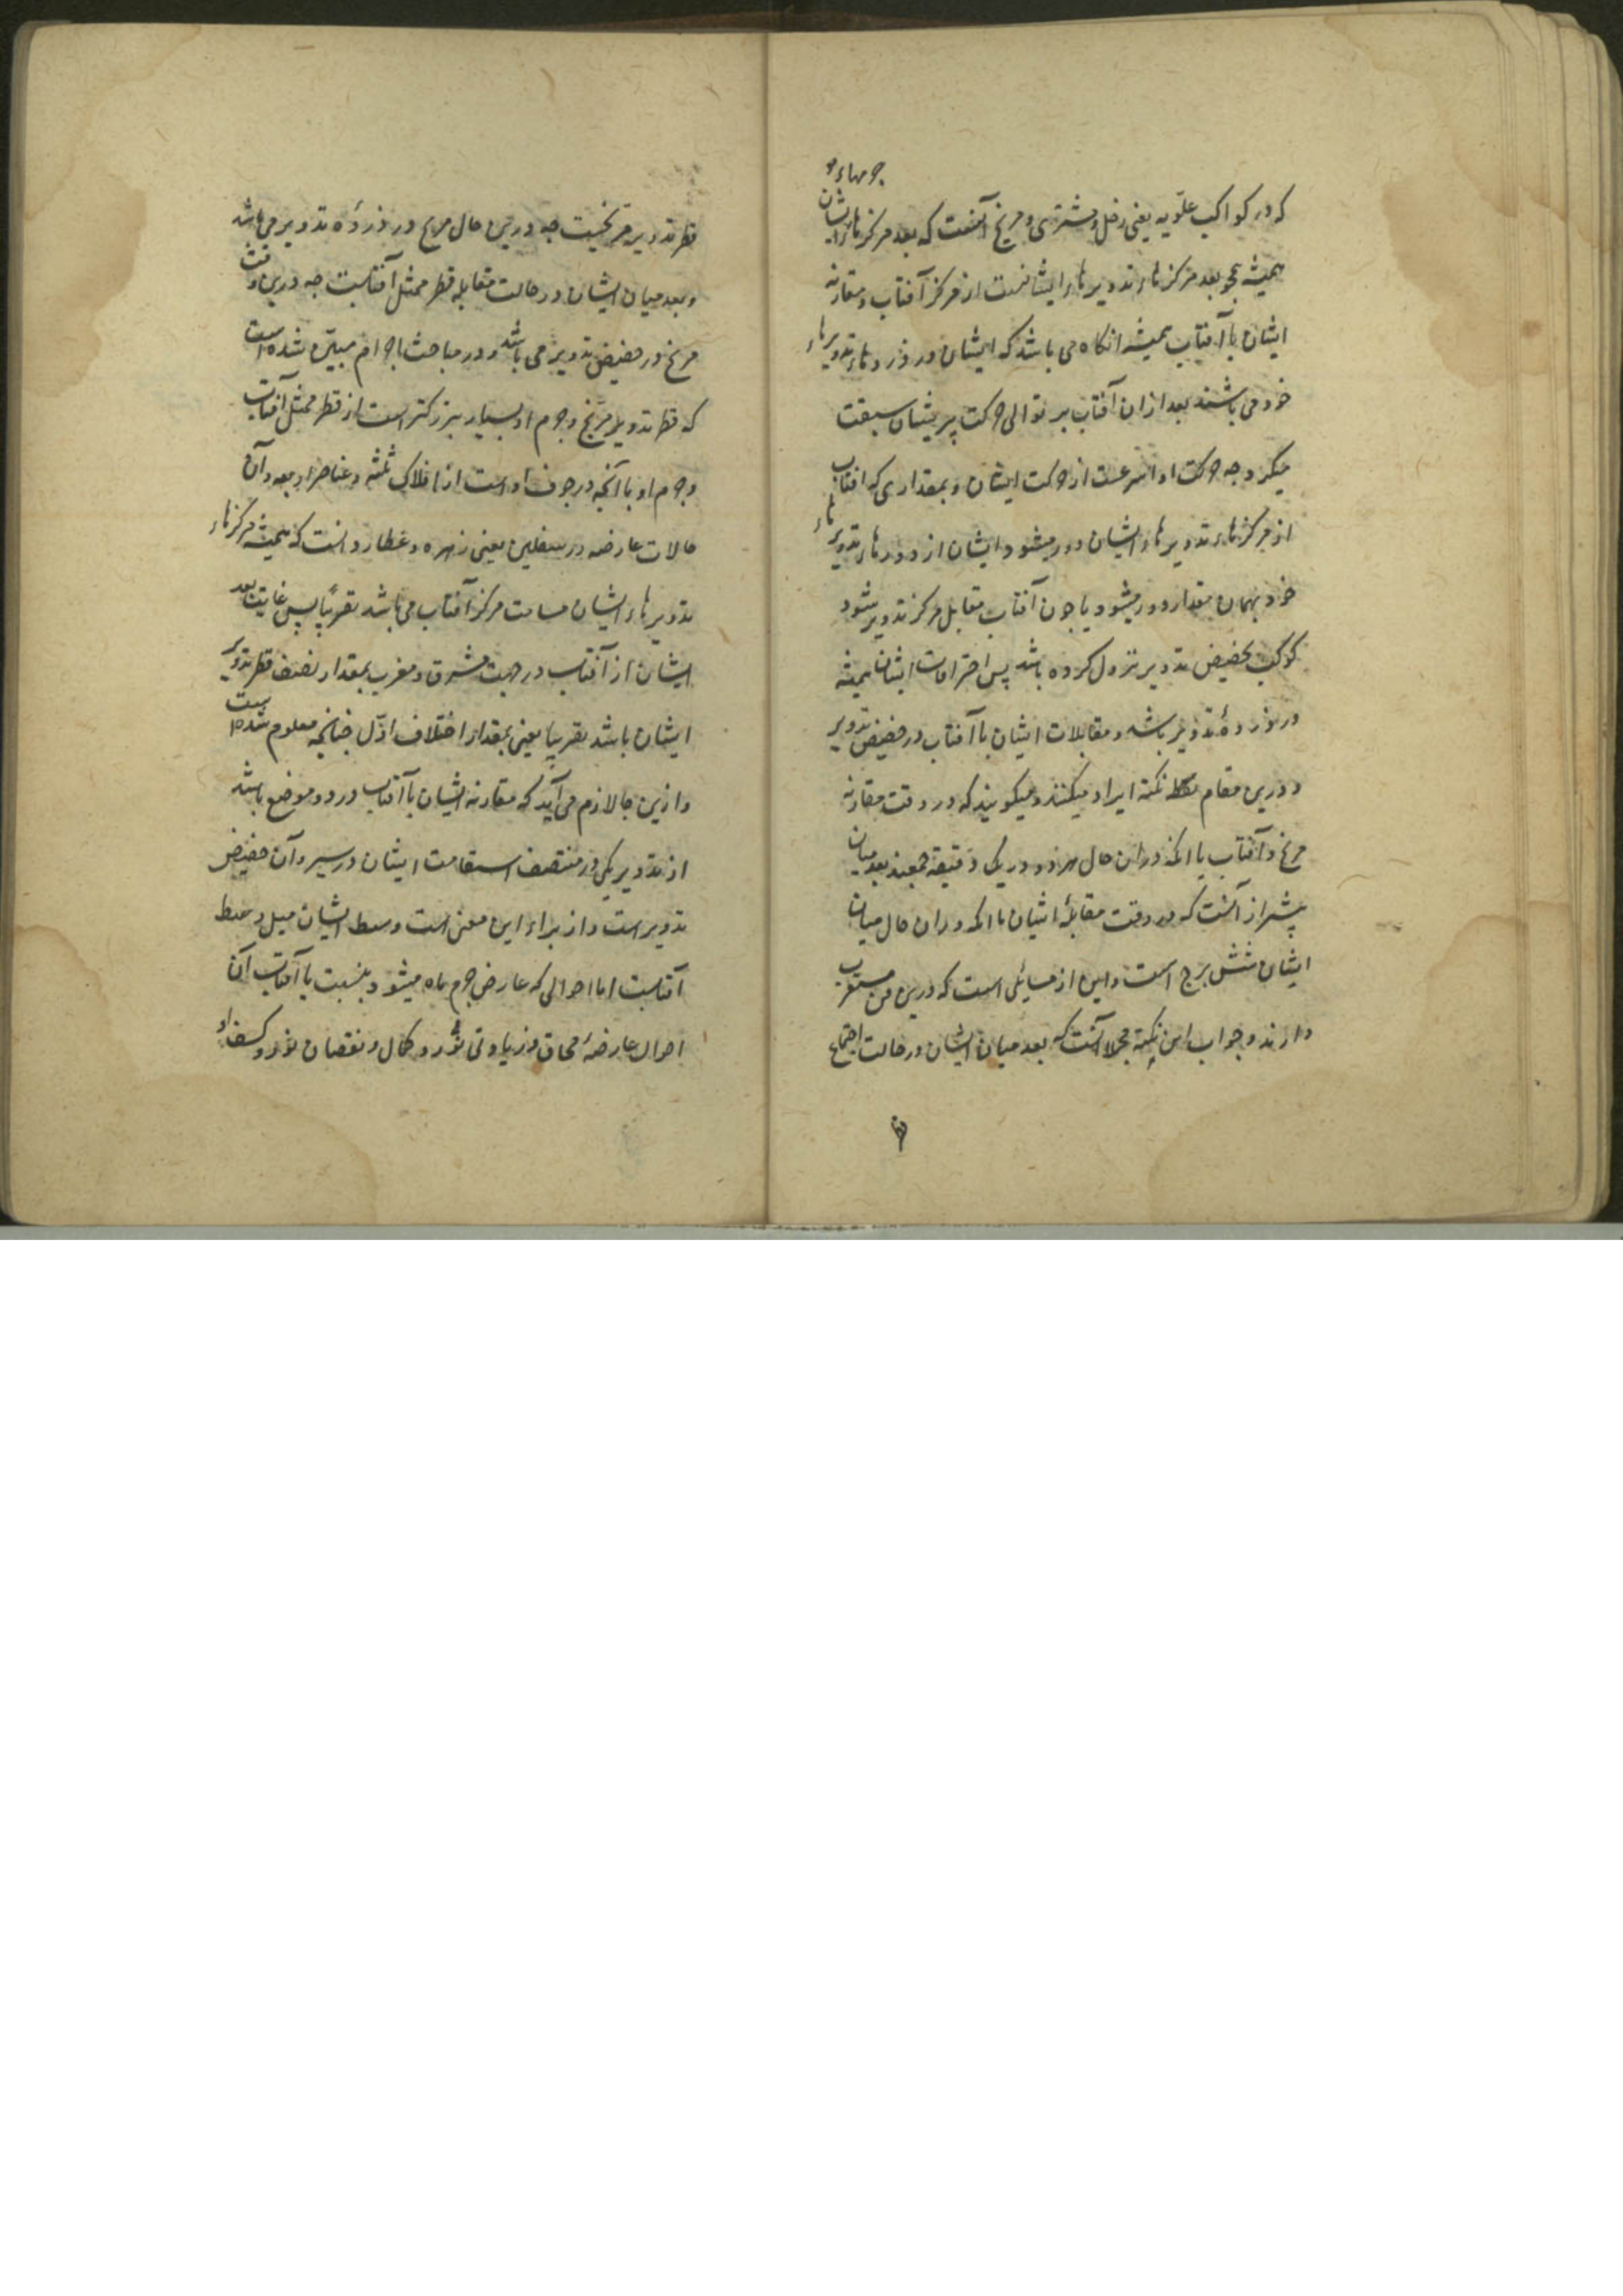 جرمهاء
که در کواکب علویه یعنی زحل و مشتری و مریخ آنست که بعد مرکزهاء ایشان
همیشه همچو بعد مرکزهاء تدویرهاء ایشانست از مرکز آفتاب و مقارنه
ایشان با آفتاب همیشه انکاه می باشد که ایشان در ذروهاء تدویرهاء
خود می باشند بعد ازان آفتاب بر توالی حرکت بریشان سبقت
میکرد جه حرکت او اسرعست از حرکت ایشان و بمقداری که افتاب
از مرکزهاء تدویرهاء ایشان دور میشود ایشان از ذروهاء تدویرهاء
خود بهمان مقدار دور میشود یا جون آفتاب مقابل مرکز تدویر شود
کوکب بحضیض تدویر نزول کرده باشد پس احتراقات ایشان همیشه
در ذروهٔ تدویر باشد و مقابلات ایشان با آفتاب در حضیض تدویر
و درین مقام نکته ایراد میکنند و میکویند که در وقت مقارنه
مریخ و آفتاب با انکه دران حال هر دو در یک دقیقه جمعند بعد میان
بیشتر از آنست که در وقت مقابلهٔ ایشان با انکه دران حال میان
ایشان شش برج است و این از مسایلی است که درین فن مستغرب
دارند و جواب این نکته مجملا آنست که بعد میان ایشان در حالت اجتماع
قطر تدویر مریخیست جه درین حال مریخ در ذروه تدویر می باشد
و بعد میان ایشان در حالت مقابله قطر ممثل آفتابست جه درین وقت
مریخ در حضیض تدویر می باشد و در مباحث اجرام مبین شده است
که قطر تدویر مریخ و جرم او بسیار بزرکتر است از قطر ممثل آفتاب
و جرم او با آنچه در جوف او است از افلاک ثلثه و عناصر اربعه و آن
حالات عارضه در سفلین یعنی زهره و عطارد انست که همیشه مرکزهاء
تدویرهاء ایشان مسامت مرکز آفتاب می باشد تقریبًا پس غایت بعد
ایشان از آفتاب در جهت مشرق و مغرب بمقدار نصف قطر تدویر
ایشان باشد تقریبا یعنی بمقدار اختلاف اوّل جنانجه معلوم شده است
و ازین جا لازم می آید که مقارنه ایشان با آفتاب در دو موضع باشد
از تدویر یکی در منتصف استقامت ایشان در سیر و آن حضیض
تدویر است و از براء این معنی است وسط ایشان میل وسط
آفتابست اما احوالی که عارض جرم ماه میشود بنسبت با آفتاب آن
احوال عارضهٔ محاق و زیادتی نور و کمال و نقصان نور و کسف او